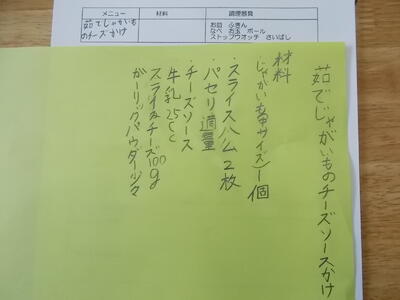 メニュー 材料 調理器具
茹でじゃがいも
のチーズかけ
お皿 ふきん
なべ お玉 ボール
ストップウオッチ さいばし
茹でじゃがいものチーズソースかけ
材料
じゃがいも(中サイズ)1個
・スライスハム2枚
・パセリ適量
・チーズソース
牛乳25cc
スライスチーズ100g
ガーリックパウダー少々